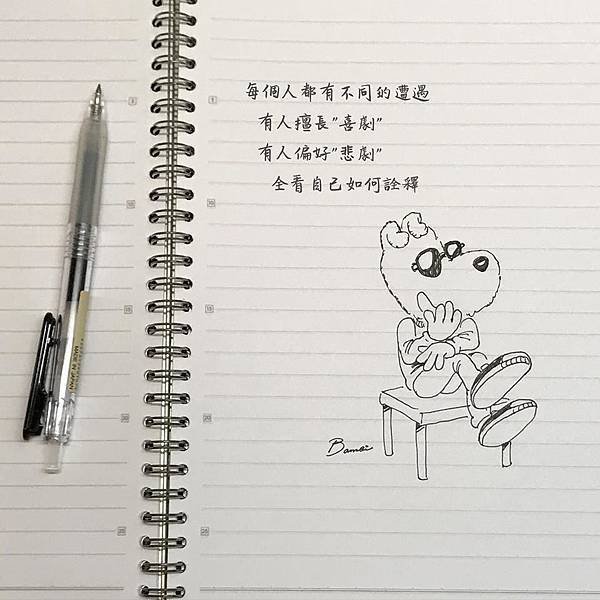 每個人都有不同的遭遇
有人擅長"喜劇"
有人偏好"悲劇"
全看自己如何詮釋
Bambi
MADE IN JAPAN